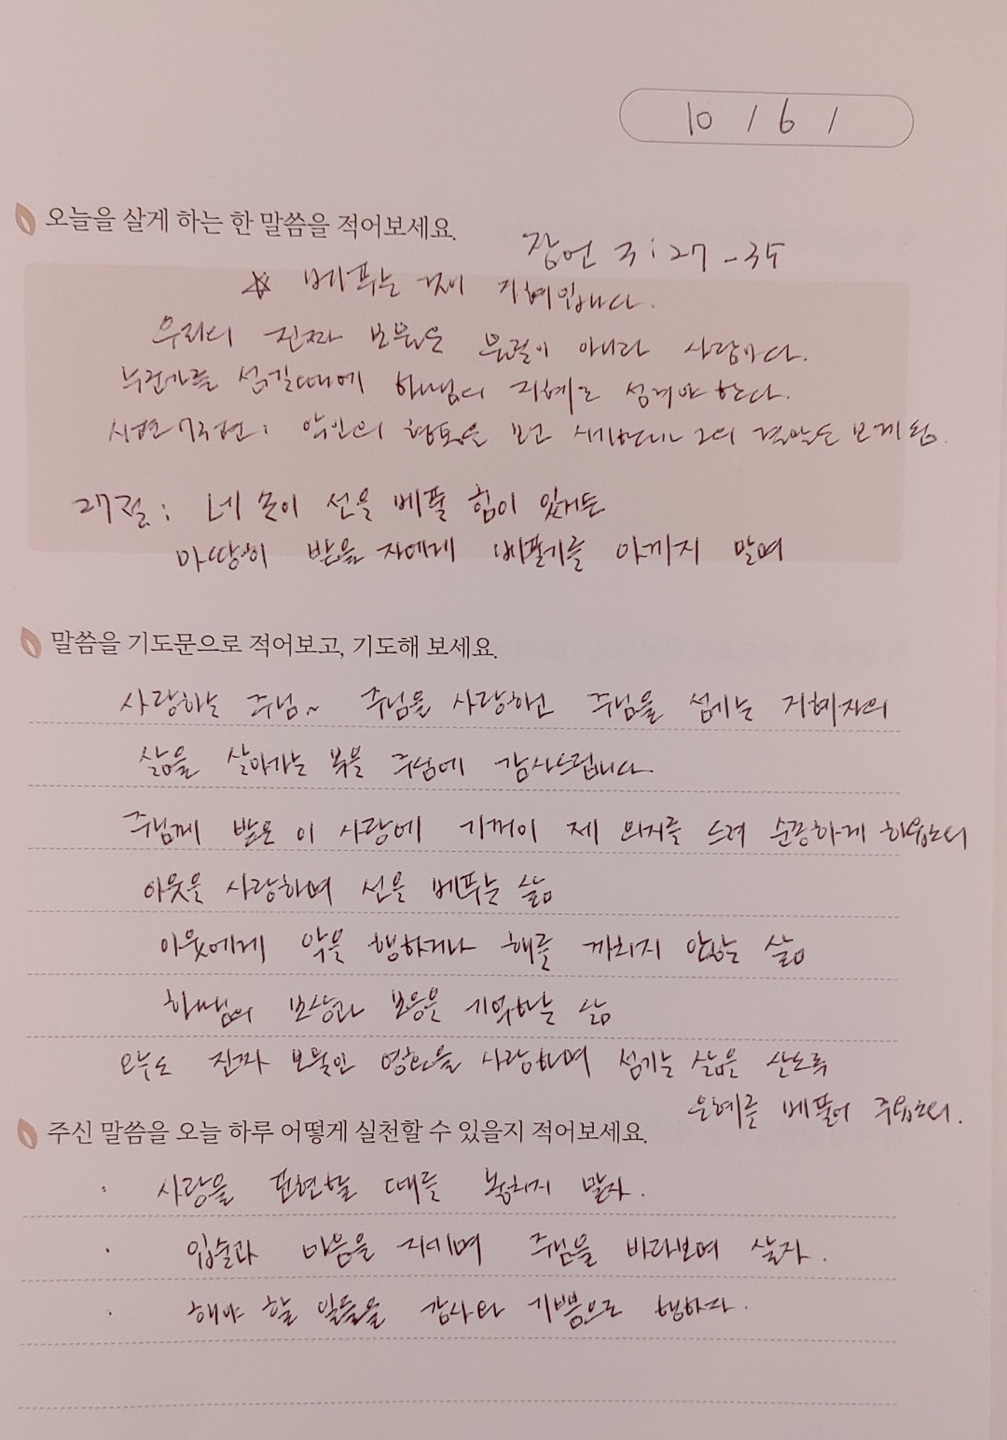 10 / 6 /
오늘을 살게 하는 한 말씀을 적어보세요.
잠언 3:27-35
☆ 베푸는 게 지혜입니다.
우리의 진짜 보물은 물질이 아니라 사람이다.
누군가를 섬길때에 하나님의 지혜로 섬겨야 한다.
시편 73편: 악인의 형통을 보고 시험하나 그의 결말도 보게 됨.
27절: 네 손이 선을 베풀 힘이 있거든
마땅히 받을 자에게 베풀기를 아끼지 말며
말씀을 기도문으로 적어보고, 기도해 보세요.
사랑하는 주님~ 주님을 사랑하고 주님을 섬기는 지혜자의
삶을 살아가는 복을 주심에 감사드립니다.
주님께 받은 이 사랑에 기꺼이 제 의지를 드려 순종하게 하옵소서
이웃을 사랑하며 선을 베푸는 삶
이웃에게 악을 행하거나 해를 끼치지 않는 삶
하나님의 보상과 보응을 기억하는 삶
오늘도 진짜 보물인 영혼을 사랑하며 섬기는 삶을 살도록
은혜를 베풀어 주옵소서.
주신 말씀을 오늘 하루 어떻게 실천할 수 있을지 적어보세요.
· 사랑을 표현할 때를 놓치지 말자.
· 입술과 마음을 지키며 주님을 바라보며 살자.
· 해야 할 일들을 감사와 기쁨으로 행하자.